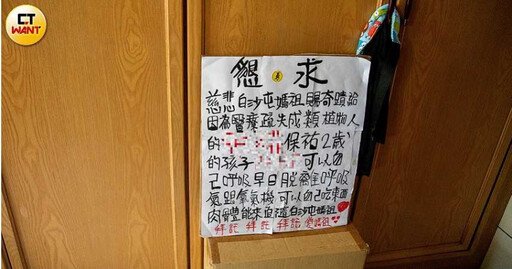 CT
WANT
懇求
慈悲白沙屯媽祖賜奇蹟給
因為醫療疏失成類植物人
的 保祐2歲
的孩子 可以自
己呼吸早日脫離呼吸
氣跟氧氣機可以自己吃東西
肉體能來跟隨白沙屯媽祖
拜託 拜託 拜託 媽祖